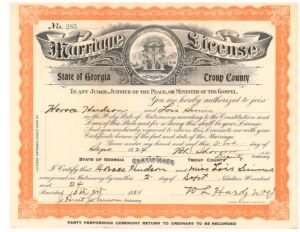 No. 285
Marriage License
State of Georgia Troup County
TO ANY JUDGE, JUSTICE OF THE PEACE, OR MINISTER OF THE GOSPEL.
You are hereby authorized to join
Horace Hudson and Lois
in the Holy State of Matrimony according to the Constitution and
Laws of this State and for so doing this shall be your License
And you are hereby required to return this License to me with your
Certificate hereon of the fact and date of the Marriage.
Given under my hand and seal this
Sept 1924
STATE OF GEORGIA CERTIFICATE TROUP COUNTY
I Certify that Horace Hudson and Miss Lois
were joined in Matrimony by me this 2 day of Sept Nineteen Hundred
and 24
Recorded
PARTY PERFORMING CEREMONY RETURN TO ORDINARY TO BE RECORDED